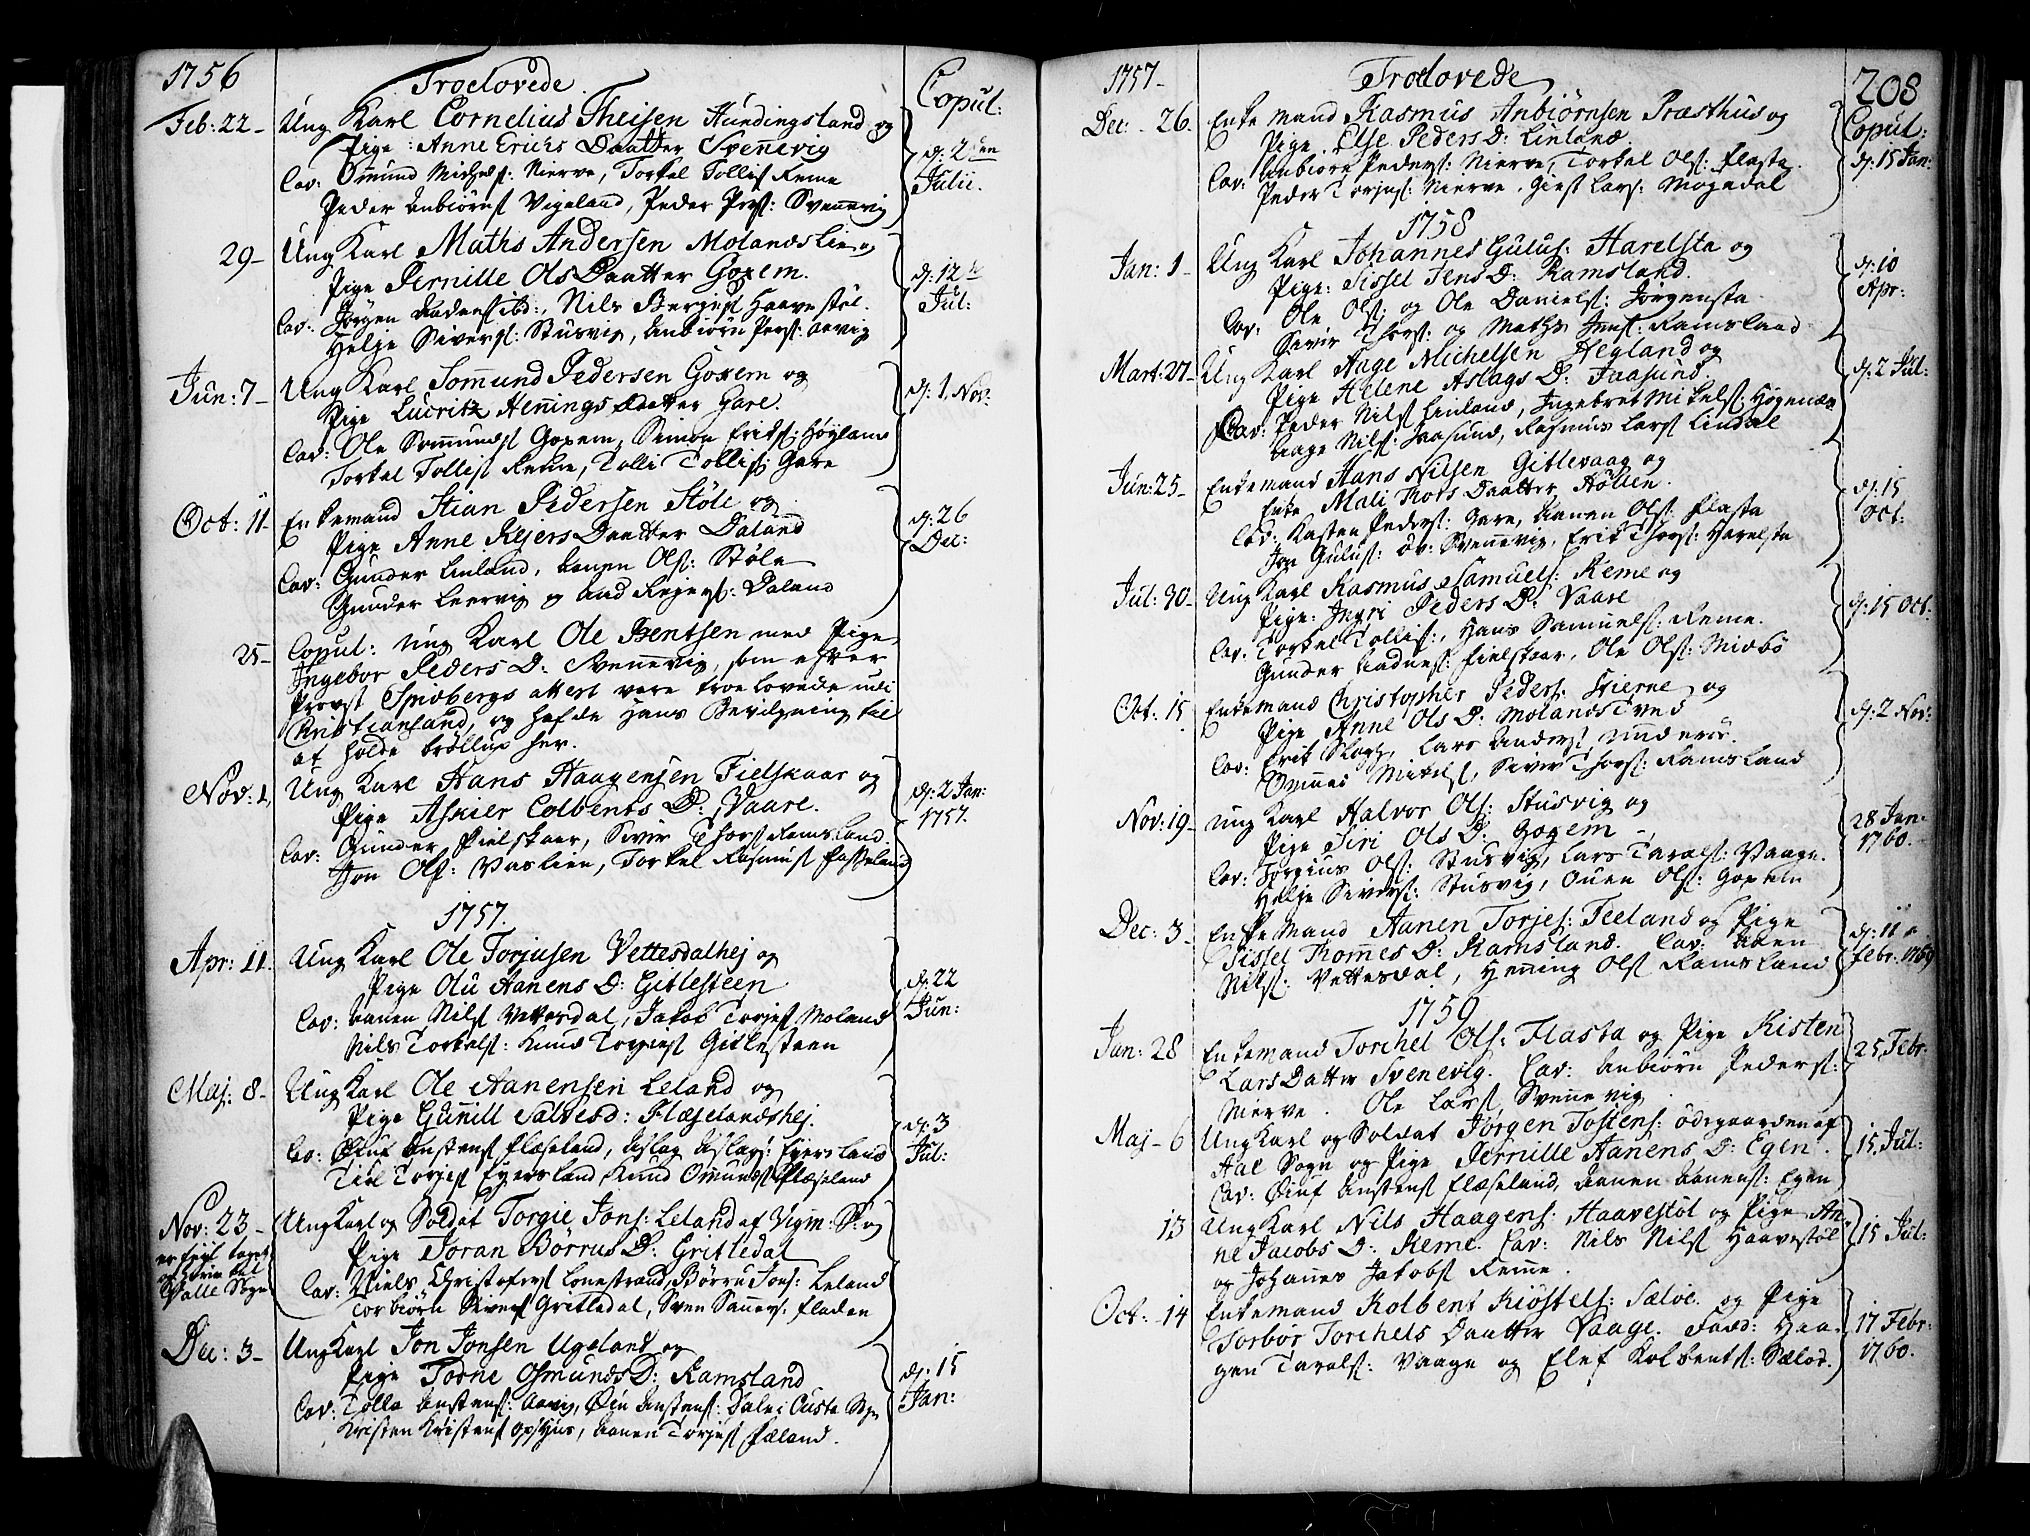 1756 Troelovede Copul:
Feb: 22 - Ung Karl Cornelius Theisen Hundingsland og
Pige: Anne Erichs Daatter Svennevig
Cav: Omund Michels: Nierve, Torkel Tollis Reme
Peder Anbiørns Vigeland, Peder Pers: Svennevig
d: 2den Julii.
29 - Ung Karl Maths Andersen Molands Lie og
Pige Pernille Ols Daatter Goxem.
Cav: Jørgen Aadens ibd:, Nils Berges Haavestøl.
Helje Sivers: Stusvig, Anbiørn Pers: Aavig
d: 12 Jul:
Jun: 7 - Ung Karl Somund Pedersen Goxem og
Pige Lucritz Hennings Daatter Gare.
Cav: Ole Somunds Goxem, Simon Eriks: Høyland
Torkel Tollis Reme, Tolli Tollis: Gare
d: 1. Nov:
Oct: 11 - Enkemand Stian Pedersen Støle og
Pige Anne Rejers Daatter Daland
Cav: Gunder Linland, Aanen Ols: Støle
Gunder Leervig og Aad Rejers: Daland
d: 26 Dec:
25 - Copul: Ung Karl Ole Bentsen med Pige
Ingebor Peders D: Svennevig, som efter
Provst Spidbergs attest vare troelovede udi
Christiansand, og hafde Hans Bevilgning til
at holde brøllup her.
Nov: 1 Ung Karl Hans Haagensen Fielskaar og
Pige Askier Colbents D: Vaare.
Cav: Gunder Fielskaar, Sivir Thors Ramsland.
Jon Ols: Vaslien, Torkel Rasmus Fasseland
d: 2 Jan: 1757.
1757.
Apr: 11. Ung Karl Ole Torjusen Vettesdalhej og
Pige Olu Aanens D: Gitlesteen
Cav: Aanen Nils Vettesdal, Jakob Torjes Moland
Nils Torkels: Knud Torjes Gitlesteen
d: 22 Jun:
Maj: 8 - Ung Karl Ole Aanensen Leland og
Pige Gunild Salves D: Flæselandshej.
Cav: Øiuf Anstens Flæseland, Aslag Aslags: Eyersland
Torjes Eyersland Knud Omunds Flæseland
d: 3 Jul:
Nov: 23 - Ung Karl og Soldat Torgie Jons: Leland af Vigm: S: og
Pige Joran Børrus D: Gritledal
Valle Sogn
Cav: Niels Christofers Lonestrand, Børru Jons: Leland
Torbiørn Sivers Gritledal, Sven Sauers: Fladen
Dec: 3 - Ung Karl Jon Jonsen Ugeland og
Pige Todne Osmunds D: Ramsland
Cav: Tolla Anstens: Aavig, Øiu Anstens: Dale i Custa Sogn
Kristen Kristens Opshus, Aanen Torjes Fæland.
d: 15 Jan:
1757 - Troelovede 208
Dec: - 26 - Enkemand Rasmus Anbiørnsen Præsthus og
Pige. Else Peders D: Linland
Cav: Anbiørn Peders: Nierve, Torkel Ols: Flasta.
Peder Torjes: Nierve, Giest Lars: Møgedal
Copul: d: 15 Jan:
1758
Jan: 1 - Ung Karl Johannes Gulus: Harelsta og
Pige: Sissel Jens D: Ramsland.
Cav: Ole Ols: og Ole Daniels: Jørgensta.
Sivir Thors: og Maths Jens: Ramsland
d: 10 Apr:
Mart: 27 - Ung Karl Aage Michelsen Hegland og
Pige Helene Aslags D: Jaasund.
Cav: Peder Nils Linland, Ingebret Mikels: Høgenæs
Aage Nils: Jaasund, Rasmus Lars Lindal
d: 2 Jul:
Jun: 25 - Enkemand Hans Nilsen Gitlevaag og
Enke Mali Thors Daatter Høllen.
Cav: Kasten Peders: Gare, Aanen Ols: Flasta
Jon Gulus: Øv: Svennevig, Erik Thors: Harelsta
d: 15 Oct:
Jul: 30 - Ung Karl Rasmus Samuels: Reme og
Pige: Ingri Peders D: Vaare
Cav: Torkel Tollis:, Hans Samuels: Reme.
Gunder Aadnes: Fielskaar, Ole Ols: Midbø
d: 15 Oct:
Oct: 15 Enkemand Christopher Peders: Stierne og
Pige Anne Ols D: Molands Tved
Cav: Erik Lars Anders
Omund Mikels, Sivir Thors: Ramsland
d: 2 Nov:
Nov: 19 - Ung Karl Halvor Ols: Stusvig og
Pige Siri Ols D: Goxem
Cav: Jørgius Ols: Stusvig, Lars Tarals: Vaage.
Helje Sivers: Stusvig, Ouen Ols: Goxem
28 Jan: 1760.
Dec: 3 - Enkemand Aanen Torjes: Feeland og Pige
Sissel Tronnes D: Ramsland. Cav: Aven
Nils: Vettesdal, Hening Ols Ramsland
d: 11 Febr: 1759
1759
Jan: 28 Enkemand Torchel Ols: Flasta og Pige Kisten
Lars Datter Svenevig. Cav: Anbiørn Peders:
Nierve. Ole Lars Svennevig.
25 Febr:
Maj - 6 Ung Karl og Soldat Jørgen Tostens: Ødegaarden af
Hal Sogn og Pige Pernille Aanens D: Egen.
Cav: Øiuf Anstens Flæseland, Aanen Aanens: Egen
15 Jul:
13 Ung Karl Nils Haagens: Haavestøl og Pige An-
ne Jacobs D: Reme. Cav: Nils Nils Haavestøl
og Johannes Jakobs Reme.
15 Jul:
Oct: - 14 Enkemand Kolbent Kiøstels: Sæløe. og Pige
Torbor Torchels Daatter Vaage. Cav: Haa-
gen Tarals: Vaage og Elef Kolbents: Sæløe.
17 Febr: 1760.